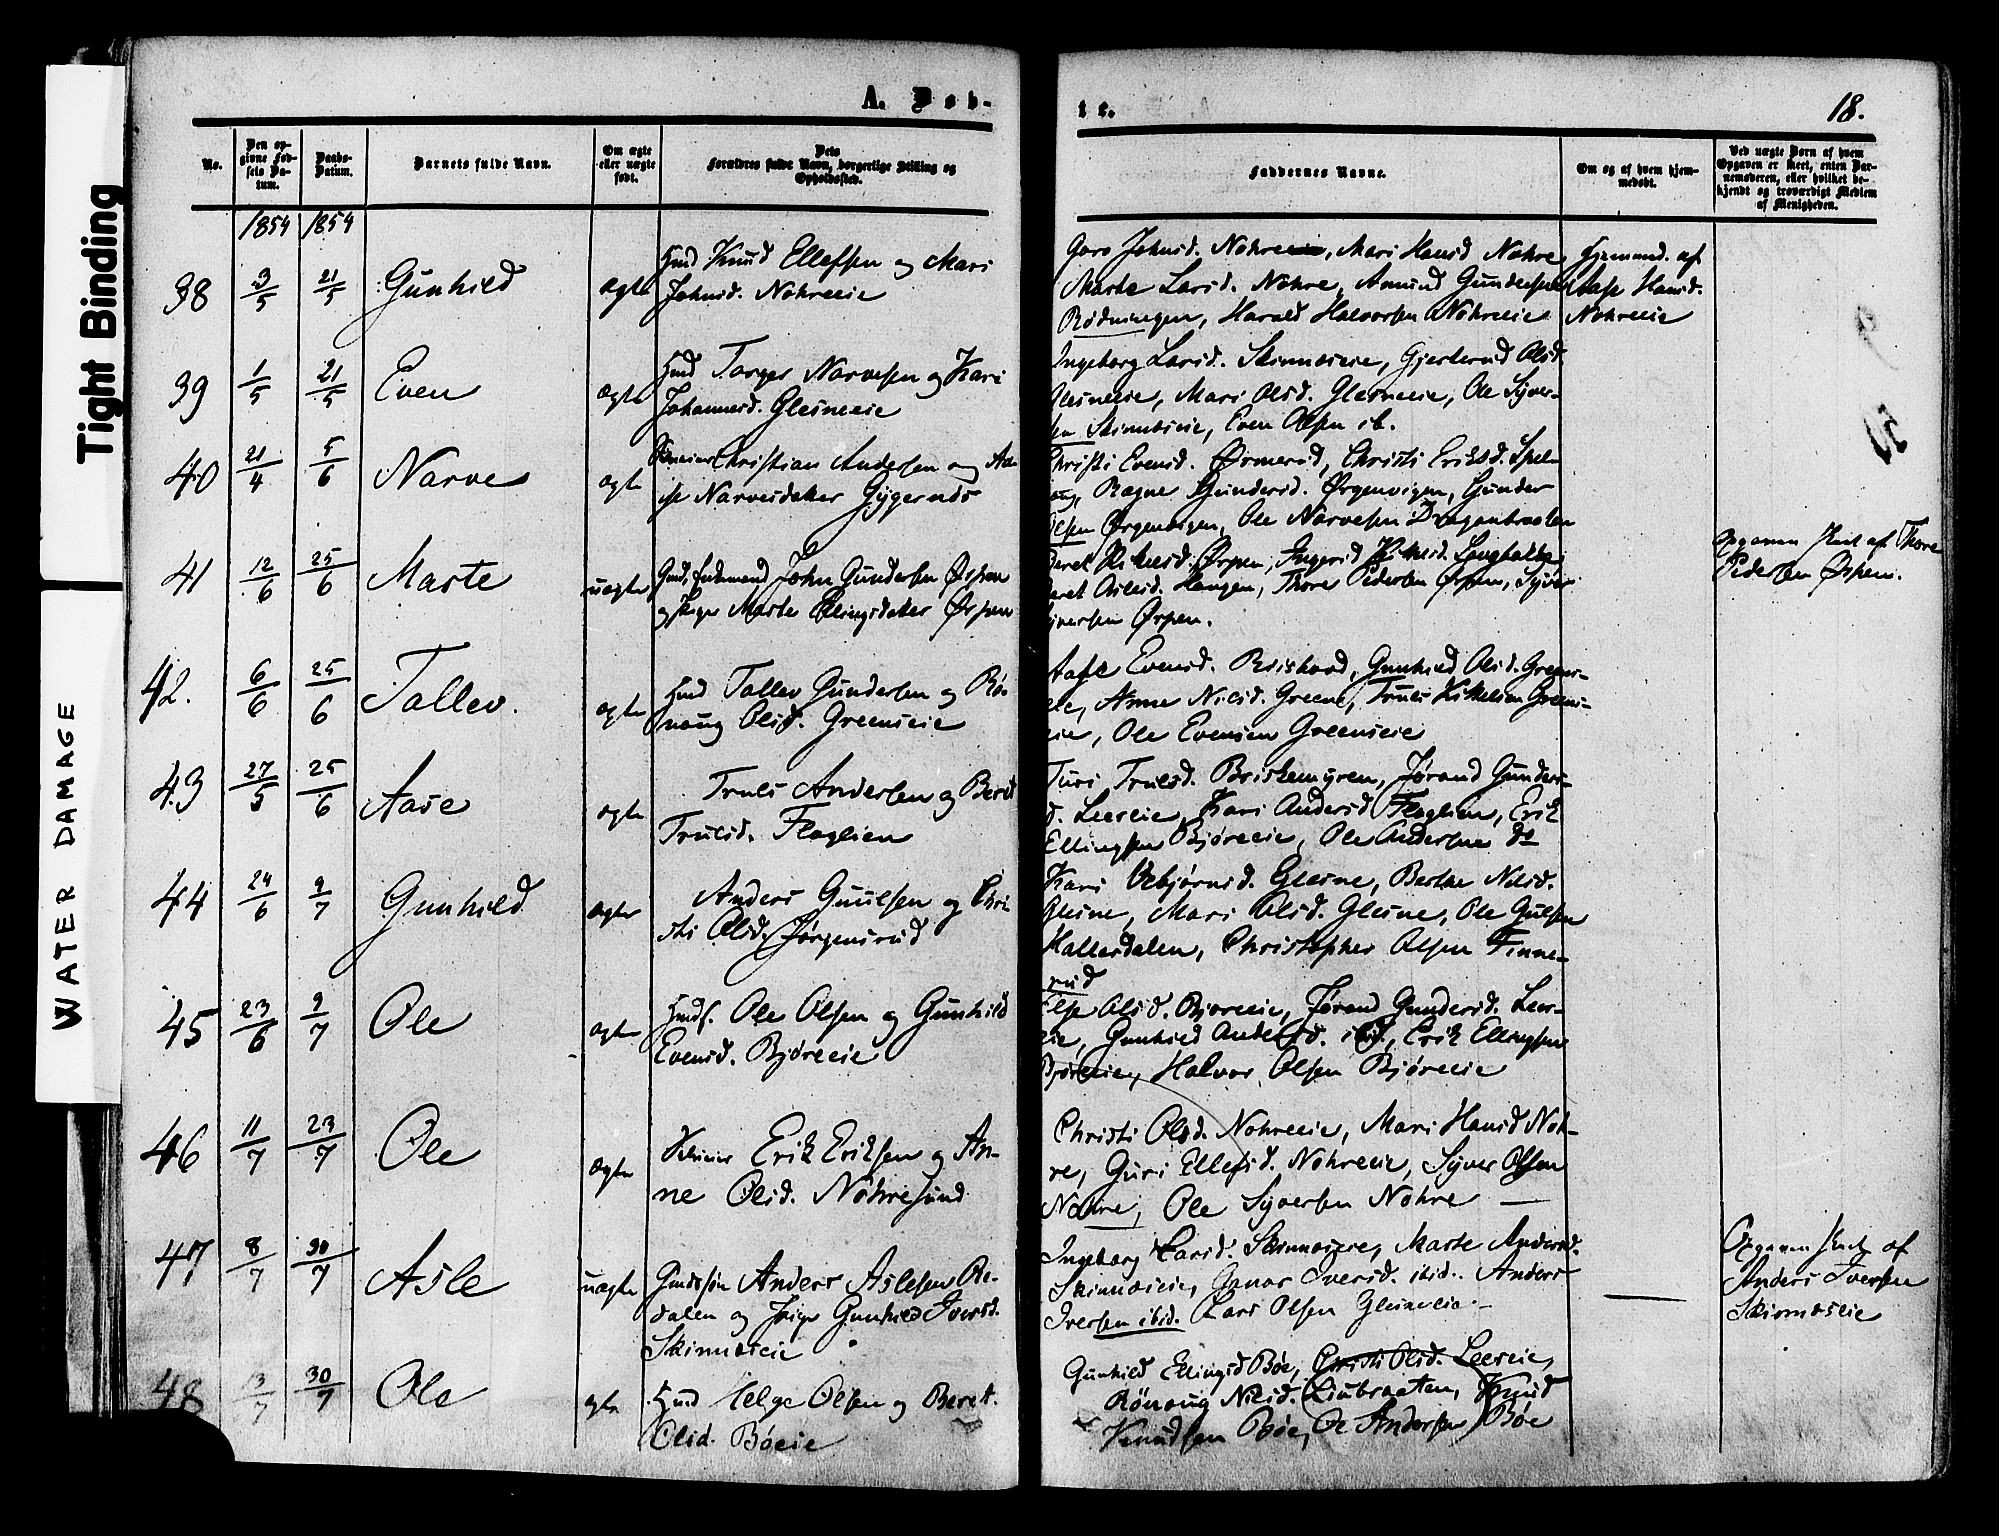 Tight Binding
WATER DAMAGE
A. Døb-
te.
18.
No.
Den opgivne Fødsels Datum.
Daabs-Datum.
Barnets fulde Navn.
Om ægte eller uægte født.
Dets Forældres fulde Navn, borgerlige Stilling og Opholdssted.
Faddernes Navne.
Om og af hvem hjemmedøbt.
Ved uægte Børn af hvem Opgaven er skeet, enten Barnemoderen, eller hvilket bekjendt og troværdigt Medlem af Menigheden.
1854 1854
38 3/5 21/5 Gunhild ægte
Hmd Knud Ellefsen og Mari
Johnsd. Nohreeie
Goro Johnsd. Nohre, Mari Hansd Nohre
Marte Larsd. Nohre, Amund Gundersen
Rødningen, Harald Halvorsen Nohreeie
Hjemmed. af
Aase Hansd.
Nohreeie
39 1/5 21/5 Even ægte
Hmd Torger Narvesen og Kari
Johannesd. Glesneeie
Ingeborg Larsd. Skinnæseie, Gjertrud Olsd.
Glesneeie, Mari Olsd. Glesneeie, Ole Syver-
sen Skinnæseie, Even Olsen ib.
40 21/4 5/6 Narve ægt
Christian Andersen og Aa-
se Narvesdatter Gygerud
Christi Evensd. Ørmerud, Christi Eriksd. Spel-
Ragne Gundersd. Ørgenvigen, Gunder
Olsen Ørgenvigen, Ole Narvesen Dragonbraaten
41 12/6 25/6 Marte uægte
John Gundersen Ørpen
og Pige Marte Ellingsdatter Ørpen
Beret Kittelsd. Ørpen, Ingerid Kittelsd.
Beret Asles. Haugen, Thore Pedersen Ørpen, Syver
Syversen Ørpen.
Opgaven skeet af Thore
Pedersen Ørpen.
42. 6/6 25/6 Tollev. ægte
Hmd Tollev Gundersen og Rø-
naug Olsd. Greenseie
Aase Evensd. Gunhild Olsd. Greens-
eie, Anne Nilsd. Greene, Truls Kittelsen Greens-
eie, Ole Evensen Greenseie
43 27/5 25/6 Aase ægte
Truls Andersen og Beret
Trulsd. Flaglien
Turi Trulsd. Briskemyren, Jørand Gunders-
d. Leereie, Kari Andersd Flaglien, Erik
Ellingsen Bjøreeie, Ole Andersen do
44 24/6 9/7 Gunhild ægte
Anders Guulsen og Chri-
sti Olsd. Jørgensrud
Kari Asbjørnsd. Glesne, Berthe Nilsd.
Glesne, Mari Olsd. Glesne, Ole Gulsen
Hallersdalen, Christopher Olsen Finne-
rud
45 23/6 9/7 Ole ægte
Hmdf. Ole Olsen og Gunhild
Evensd. Bjøreeie
Else Olsd. Bjøreeie, Jørand Gundersd. Leer-
eie, Gunhild Andersd. ibid, Erik Ellingsen
Bjøreeie, Halvor Olsen Bjøreeie
46 11/7 23/7 Ole ægte
Erik Eriksen og An-
ne Olsd. Nohresund
Christi Olsd. Nohreeie, Mari Hansd Noh-
re, Guri Ellefsd. Nohreeie, Syver Olsen
Nohre, Ole Syversen Nohre
47 8/7 30/7 Asle uægte
Gmdssøn Anders Aslesen Re-
dalen og Pige Gunhild Iversd.
Skinnæseie
Ingeborg Larsd. Skinnæseie, Marte Andersd.
Skinnæseie, Gunor Iversd. ibid. Anders
Iversen ibid. Lars Olsen Glesneeie
Opgaven skeet af
Anders Iversen
Skinnæseie
48 13/7 30/7 Ole ægte
Hmd Helge Olsen og Beret
Olsd. Bøeie
Gunhild Ellingsd Bøe, Christi Olsd. Leereie,
Rønaug Nilsd. Liubraaten, Knud
Knudsen Bøe, Ole Andersen Bøe